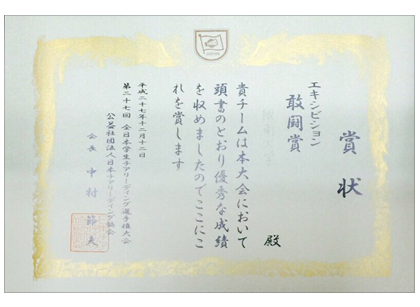 賞状
エキシビション
敢闘賞
殿
貴チームは本大会において
頭書のとおり優秀な成績
を収めましたのでここにこ
れを賞します
平成二十七年十二月十二日
第二十七回 全日本学生チアリーディング選手権大会
公益社団法人日本チアリーディング協会
会長 中村 節夫